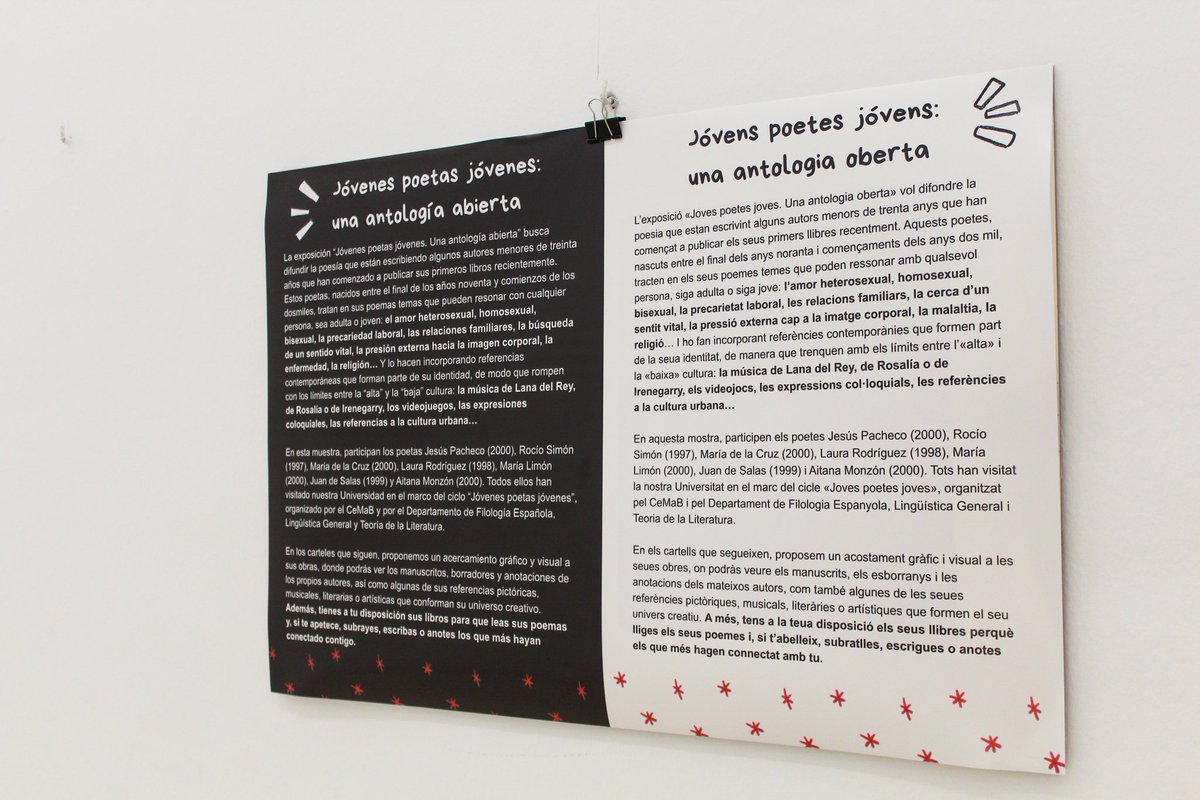 Jóvenes poetas jóvenes:
una antología abierta
La exposición “Jóvenes poetas jóvenes. Una antología abierta” busca
difundir la poesía que están escribiendo algunos autores menores de treinta
años que han comenzado a publicar sus primeros libros recientemente.
Estos poetas, nacidos entre el final de los años noventa y comienzos de los
dosmiles, tratan en sus poemas temas que pueden resonar con cualquier
persona, sea adulta o joven: el amor heterosexual, homosexual,
bisexual, la precariedad laboral, las relaciones familiares, la búsqueda
de un sentido vital, la presión externa hacia la imagen corporal, la
enfermedad, la religión... Y lo hacen incorporando referencias
contemporáneas que forman parte de su identidad, de modo que rompen
con los límites entre la “alta” y la “baja” cultura: la música de Lana del Rey,
de Rosalía o de Irenegarry, los videojuegos, las expresiones
coloquiales, las referencias a la cultura urbana...
En esta muestra, participan los poetas Jesús Pacheco (2000), Rocío Simón
(1997), María de la Cruz (2000), Laura Rodríguez (1998), María Limón
(2000), Juan de Salas (1999) y Aitana Monzón (2000). Todos ellos han
visitado nuestra Universidad en el marco del ciclo “Jóvenes poetas jóvenes”,
organizado por el CeMaB y por el Departamento de Filología Española,
Lingüística General y Teoría de la Literatura.
En los carteles que siguen, proponemos un acercamiento gráfico y visual a
sus obras, donde podrás ver los manuscritos, borradores y anotaciones de
los propios autores, así como algunas de sus referencias pictóricas,
musicales, literarias o artísticas que conforman su universo creativo.
Además, tienes a tu disposición sus libros para que leas sus poemas
y, si te apetece, subrayes, escribas o anotes los que más hayan
conectado contigo.
Jóvens poetes jóvens:
una antologia oberta
L’exposició «Joves poetes joves. Una antologia oberta» vol difondre la
poesia que estan escrivint alguns autors menors de trenta anys que han
començat a publicar els seus primers llibres recentment. Aquests poetes,
nascuts entre el final dels anys noranta i començaments dels anys dos mil,
tracten en els seus poemes temes que poden ressonar amb qualsevol
persona, siga adulta o siga jove: l’amor heterosexual, homosexual,
bisexual, la precarietat laboral, les relacions familiars, la cerca d’un
sentit vital, la pressió externa cap a la imatge corporal, la malaltia, la
religió... I ho fan incorporant referències contemporànies que formen part
de la seua identitat, de manera que trenquen amb els límits entre l’«alta» i
la «baixa» cultura: la música de Lana del Rey, de Rosalía o de
Irenegarry, els videojocs, les expressions col·loquials, les referències
a la cultura urbana...
En aquesta mostra, participen els poetes Jesús Pacheco (2000), Rocío
Simón (1997), María de la Cruz (2000), Laura Rodríguez (1998), María
Limón (2000), Juan de Salas (1999) i Aitana Monzón (2000). Tots han visitat
la nostra Universitat en el marc del cicle «Joves poetes joves», organitzat
pel CeMaB i pel Departament de Filologia Espanyola, Lingüística General i
Teoria de la Literatura.
En els cartells que segueixen, proposem un acostament gràfic i visual a les
seues obres, on podràs veure els manuscrits, els esborranys i les
anotacions dels mateixos autors, com també algunes de les seues
referències pictòriques, musicals, literàries o artístiques que formen el seu
univers creatiu. A més, tens a la teua disposició els seus llibres perquè
lliges els seus poemes i, si t’abelleix, subratlles, escrigues o anotes
els que més hagen connectat amb tu.